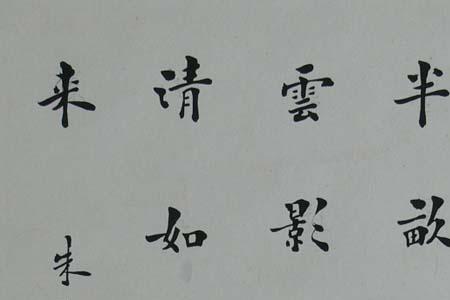 半畝
雲影
清如
来朱